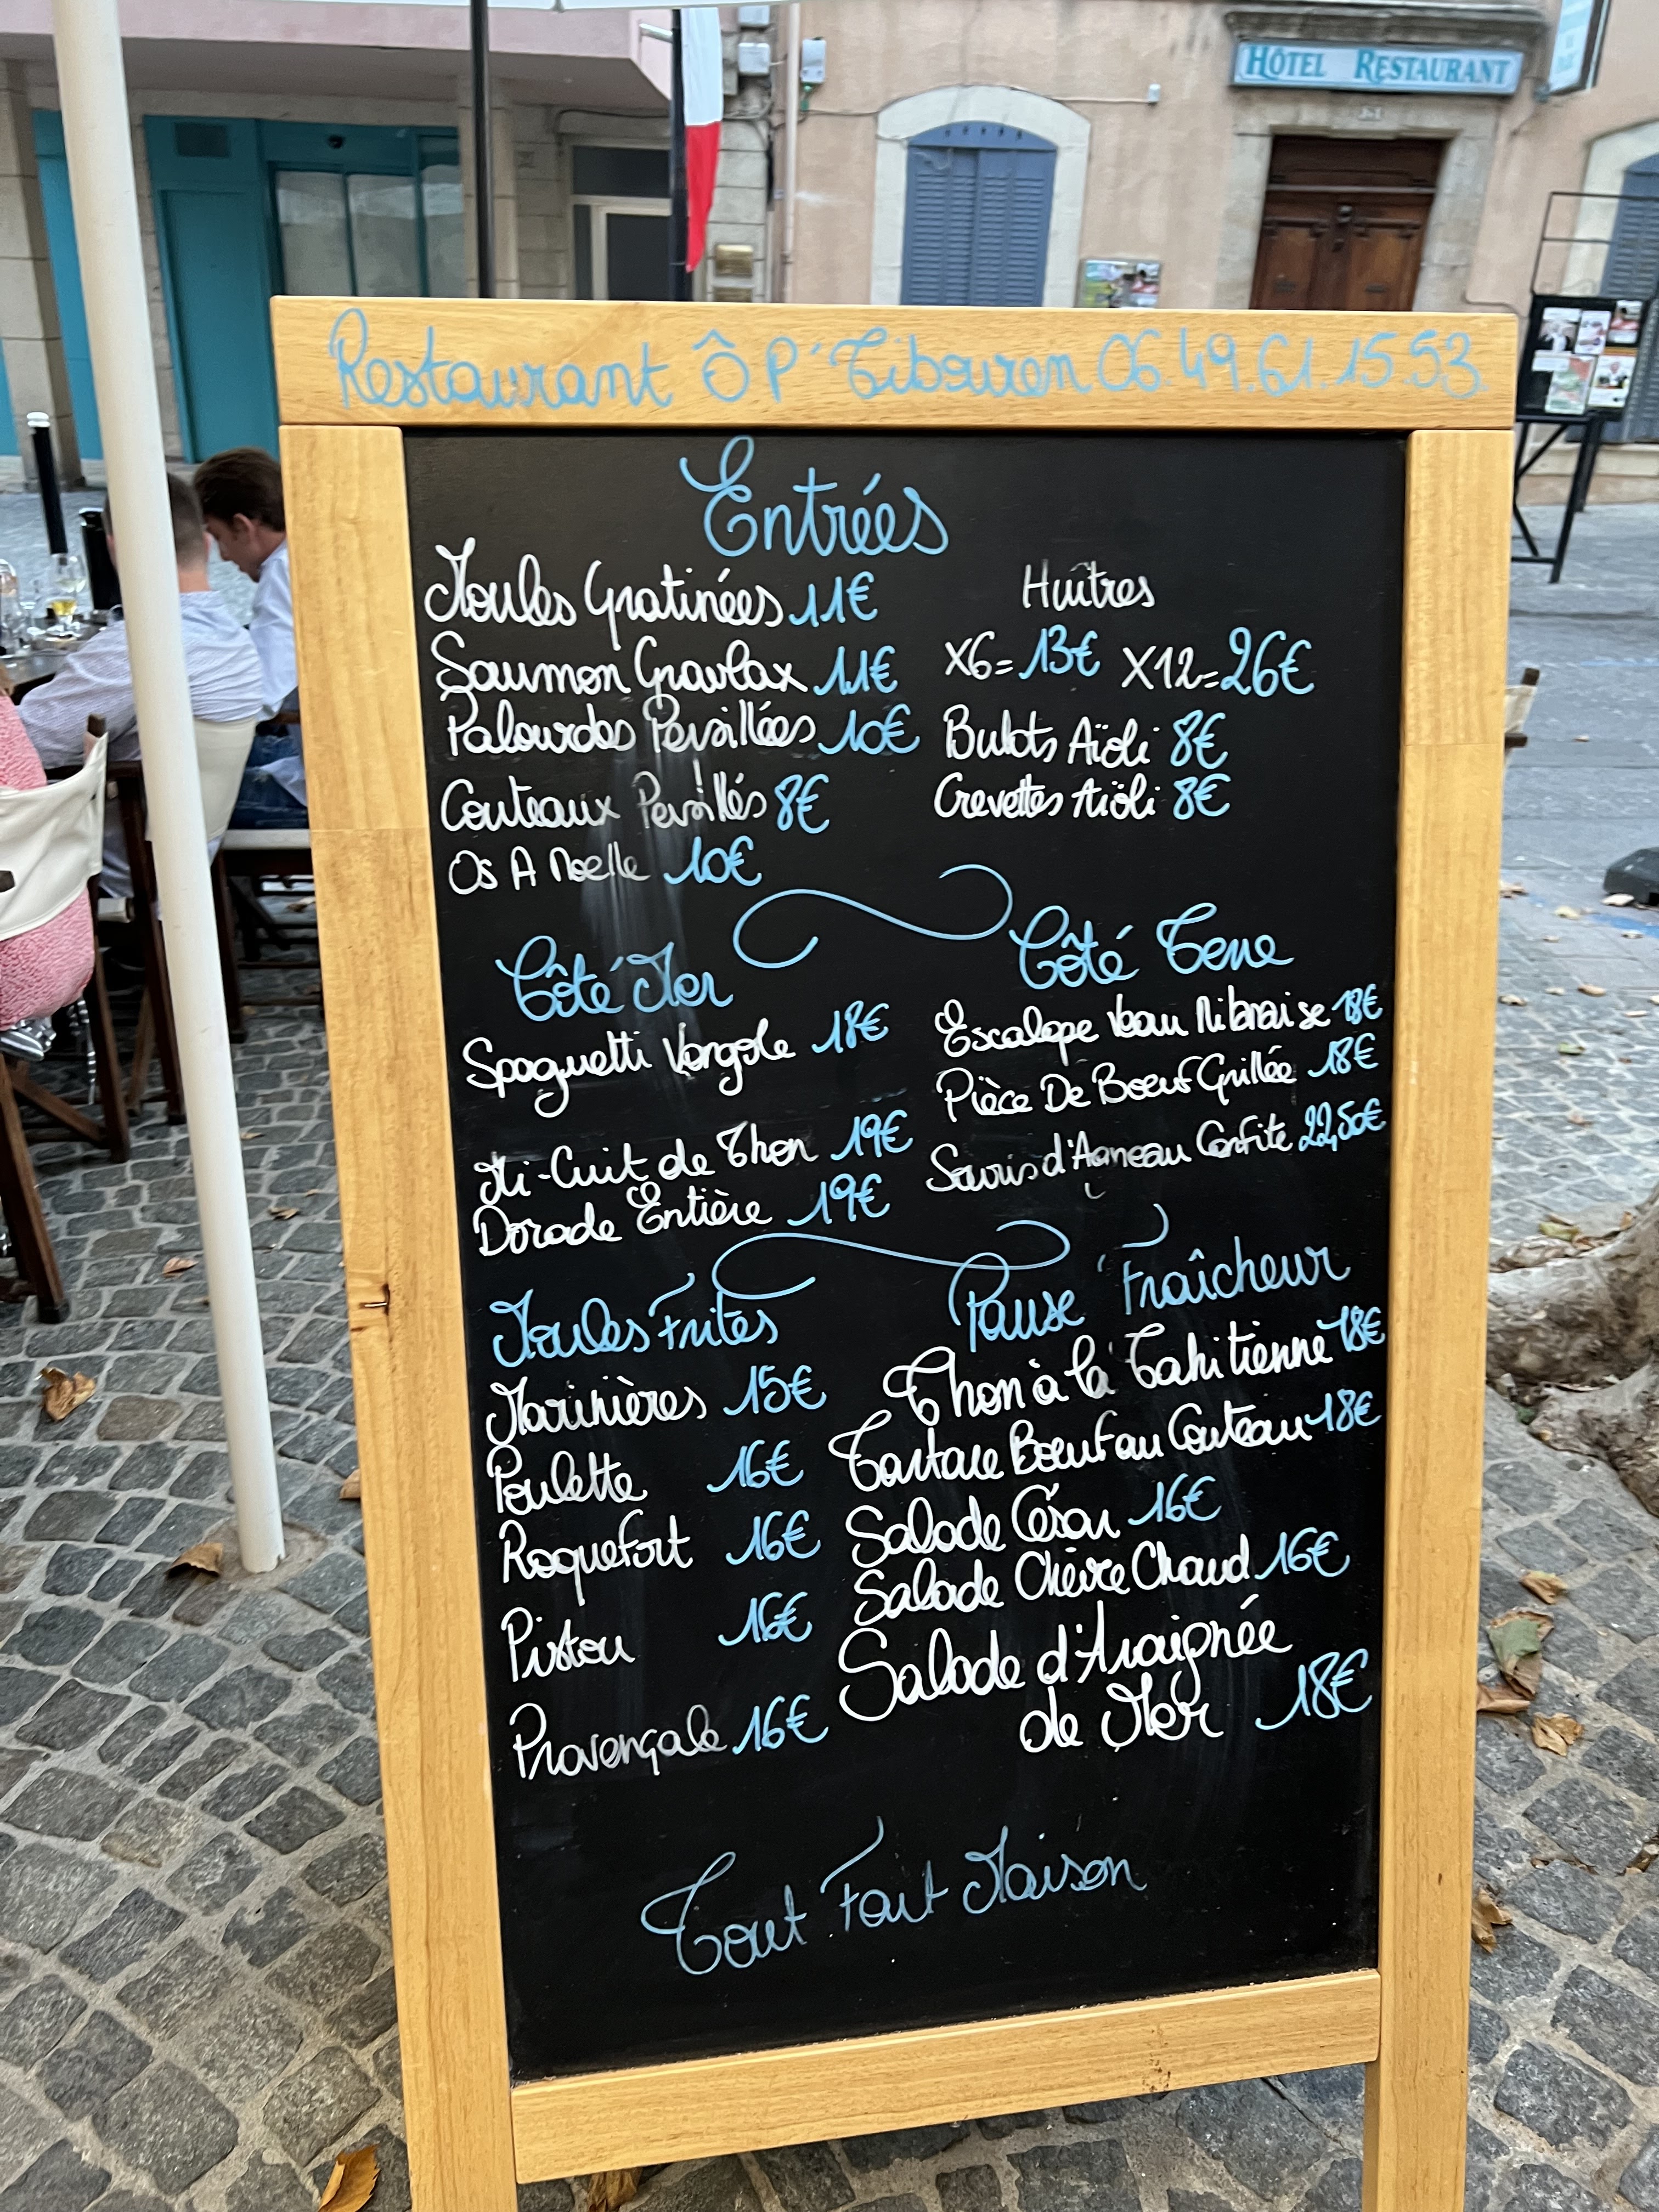 HÔTEL RESTAURANT
Restaurant Ô P'Tibouren 06.49.61.15.53
Entrées
Moules Gratinées 11€
Saumon Gravlax 11€
Palourdes Persillées 10€
Couteaux Persillés 8€
Os A Moelle 10€
Huîtres
X6=13€ X12=26€
Bulots Aïoli 8€
Crevettes Aïoli 8€
Côté Mer
Spaguetti Vongole 18€
Mi-Cuit de Thon 19€
Dorade Entière 19€
Côté Terre
Escalope Veau Milanaise 18€
Pièce De Boeuf Grillée 18€
Souris d'Agneau Confite 22,50€
Moules Frites
Marinières 15€
Poulette 16€
Roquefort 16€
Pistou 16€
Provençale 16€
Pause Fraîcheur
Thon à la Tahitienne 18€
Tartare Boeuf au Couteau 18€
Salade César 16€
Salade Chèvre Chaud 16€
Salade d'Araignée
de Mer 18€
Tout Fait Maison